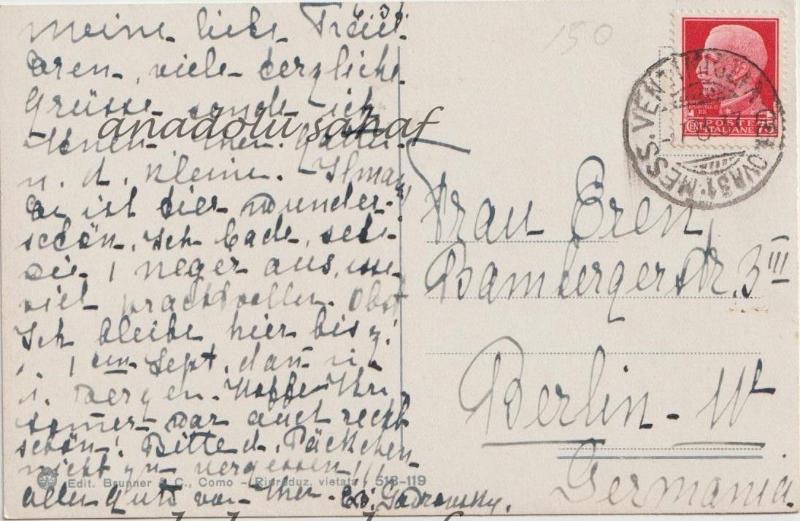 150
meine liebe Frau
Eren, viele herzliche
Grüsse sende ich
Ihnen Ihrem Gatten
u. d. Kleinen.
Es ist hier wunder-
schön. Ich bade, sehe
wie 1 Neger aus, esse
viel prachtvolles Obst
Ich bleibe hier bis
1 ten Sept, dann
Bergen. Hoffe Ihr
Sommer war auch recht
schön! Bitte d. Päckchen
nicht zu vergessen!
alles Gute von Ihrer
anadolu sahaf
Edit. Brunner & C., Como - (Riproduz. vietata) 518-119
POSTE
ITALIANE
CENT 75
MESS. VEN
Frau Eren,
Bambergerstr. 3 III
Berlin - W
Germania